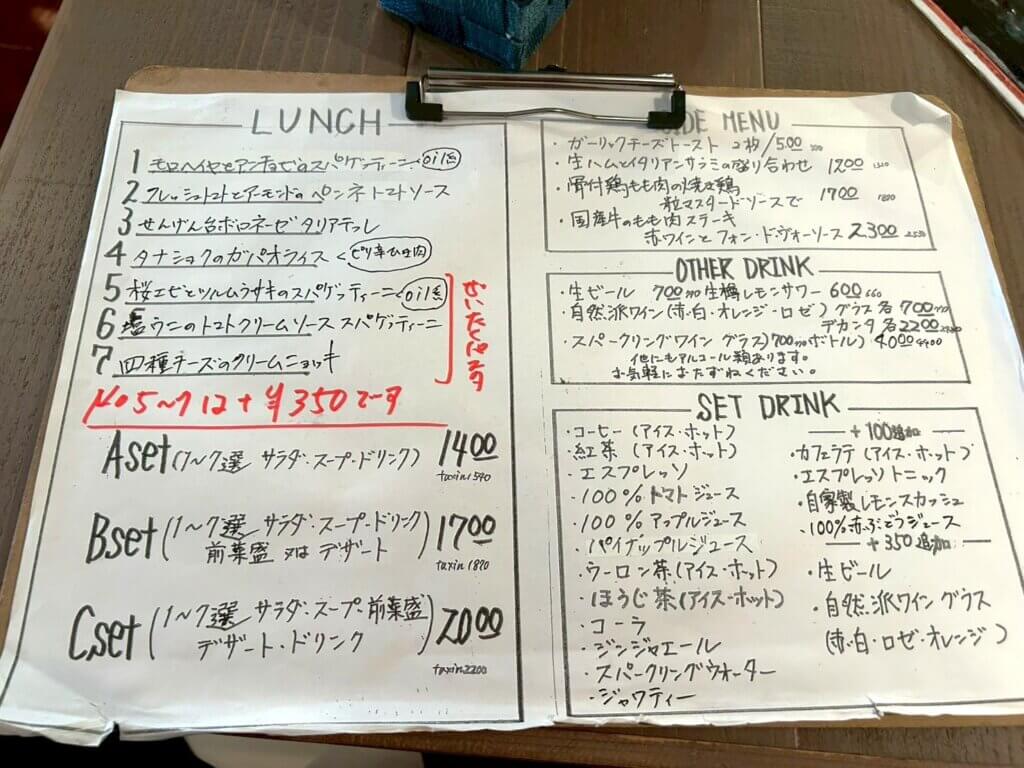 LUNCH
1 モロヘイヤとアンチョビのスパゲッティーニ oil系
2 フレッシュトマトとアーモンドのペンネ トマトソース
3 せんげん台ボロネーゼ タリアテッレ
4 タナショクのガパオライス ピリ辛
5 桜エビとツルムラサキのスパゲッティーニ oil系
6 塩ウニのトマトクリームソース スパゲッティーニ
7 四種チーズのクリームニョッキ
ぜいたくパスタ
No 5〜7は+¥350です
Aset (1〜7選 サラダ・スープ・ドリンク) 1400
taxin1540
Bset (1〜7選 サラダ・スープ・ドリンク
前菜盛 又は デザート) 1700
taxin1870
Cset (1〜7選 サラダ・スープ・前菜盛
デザート・ドリンク) 2000
taxin2200
MENU
・ガーリックチーズトースト 2枚/500
・生ハムとイタリアンサラミの盛り合わせ 1200 1320
・骨付鶏もも肉の焼き鶏
粒マスタードソースで 1700
・国産牛のもも肉ステーキ
赤ワインとフォン・ド・ヴォーソース 2300 2530
OTHER DRINK
・生ビール 700 770 生樽レモンサワー 600 660
・自然派ワイン(赤・白・オレンジ・ロゼ) グラス各 700 770
デカンタ各 2200
・スパークリングワイン グラス) 700 770 ボトル) 4000 4400
他にもアルコール類あります。
お気軽におたずねください。
SET DRINK
・コーヒー (アイス・ホット)
・紅茶 (アイス・ホット)
・エスプレッソ
・100%トマトジュース
・100%アップルジュース
・パイナップルジュース
・ウーロン茶(アイス・ホット)
・ほうじ茶(アイス・ホット)
・コーラ
・ジンジャエール
・スパークリングウォーター
・ジャワティー
+100追加
・カフェラテ (アイス・ホット)
・エスプレッソトニック
・自家製レモンスカッシュ
・100%赤ぶどうジュース
+350追加
・生ビール
・自然派ワイン グラス
(赤・白・ロゼ・オレンジ)